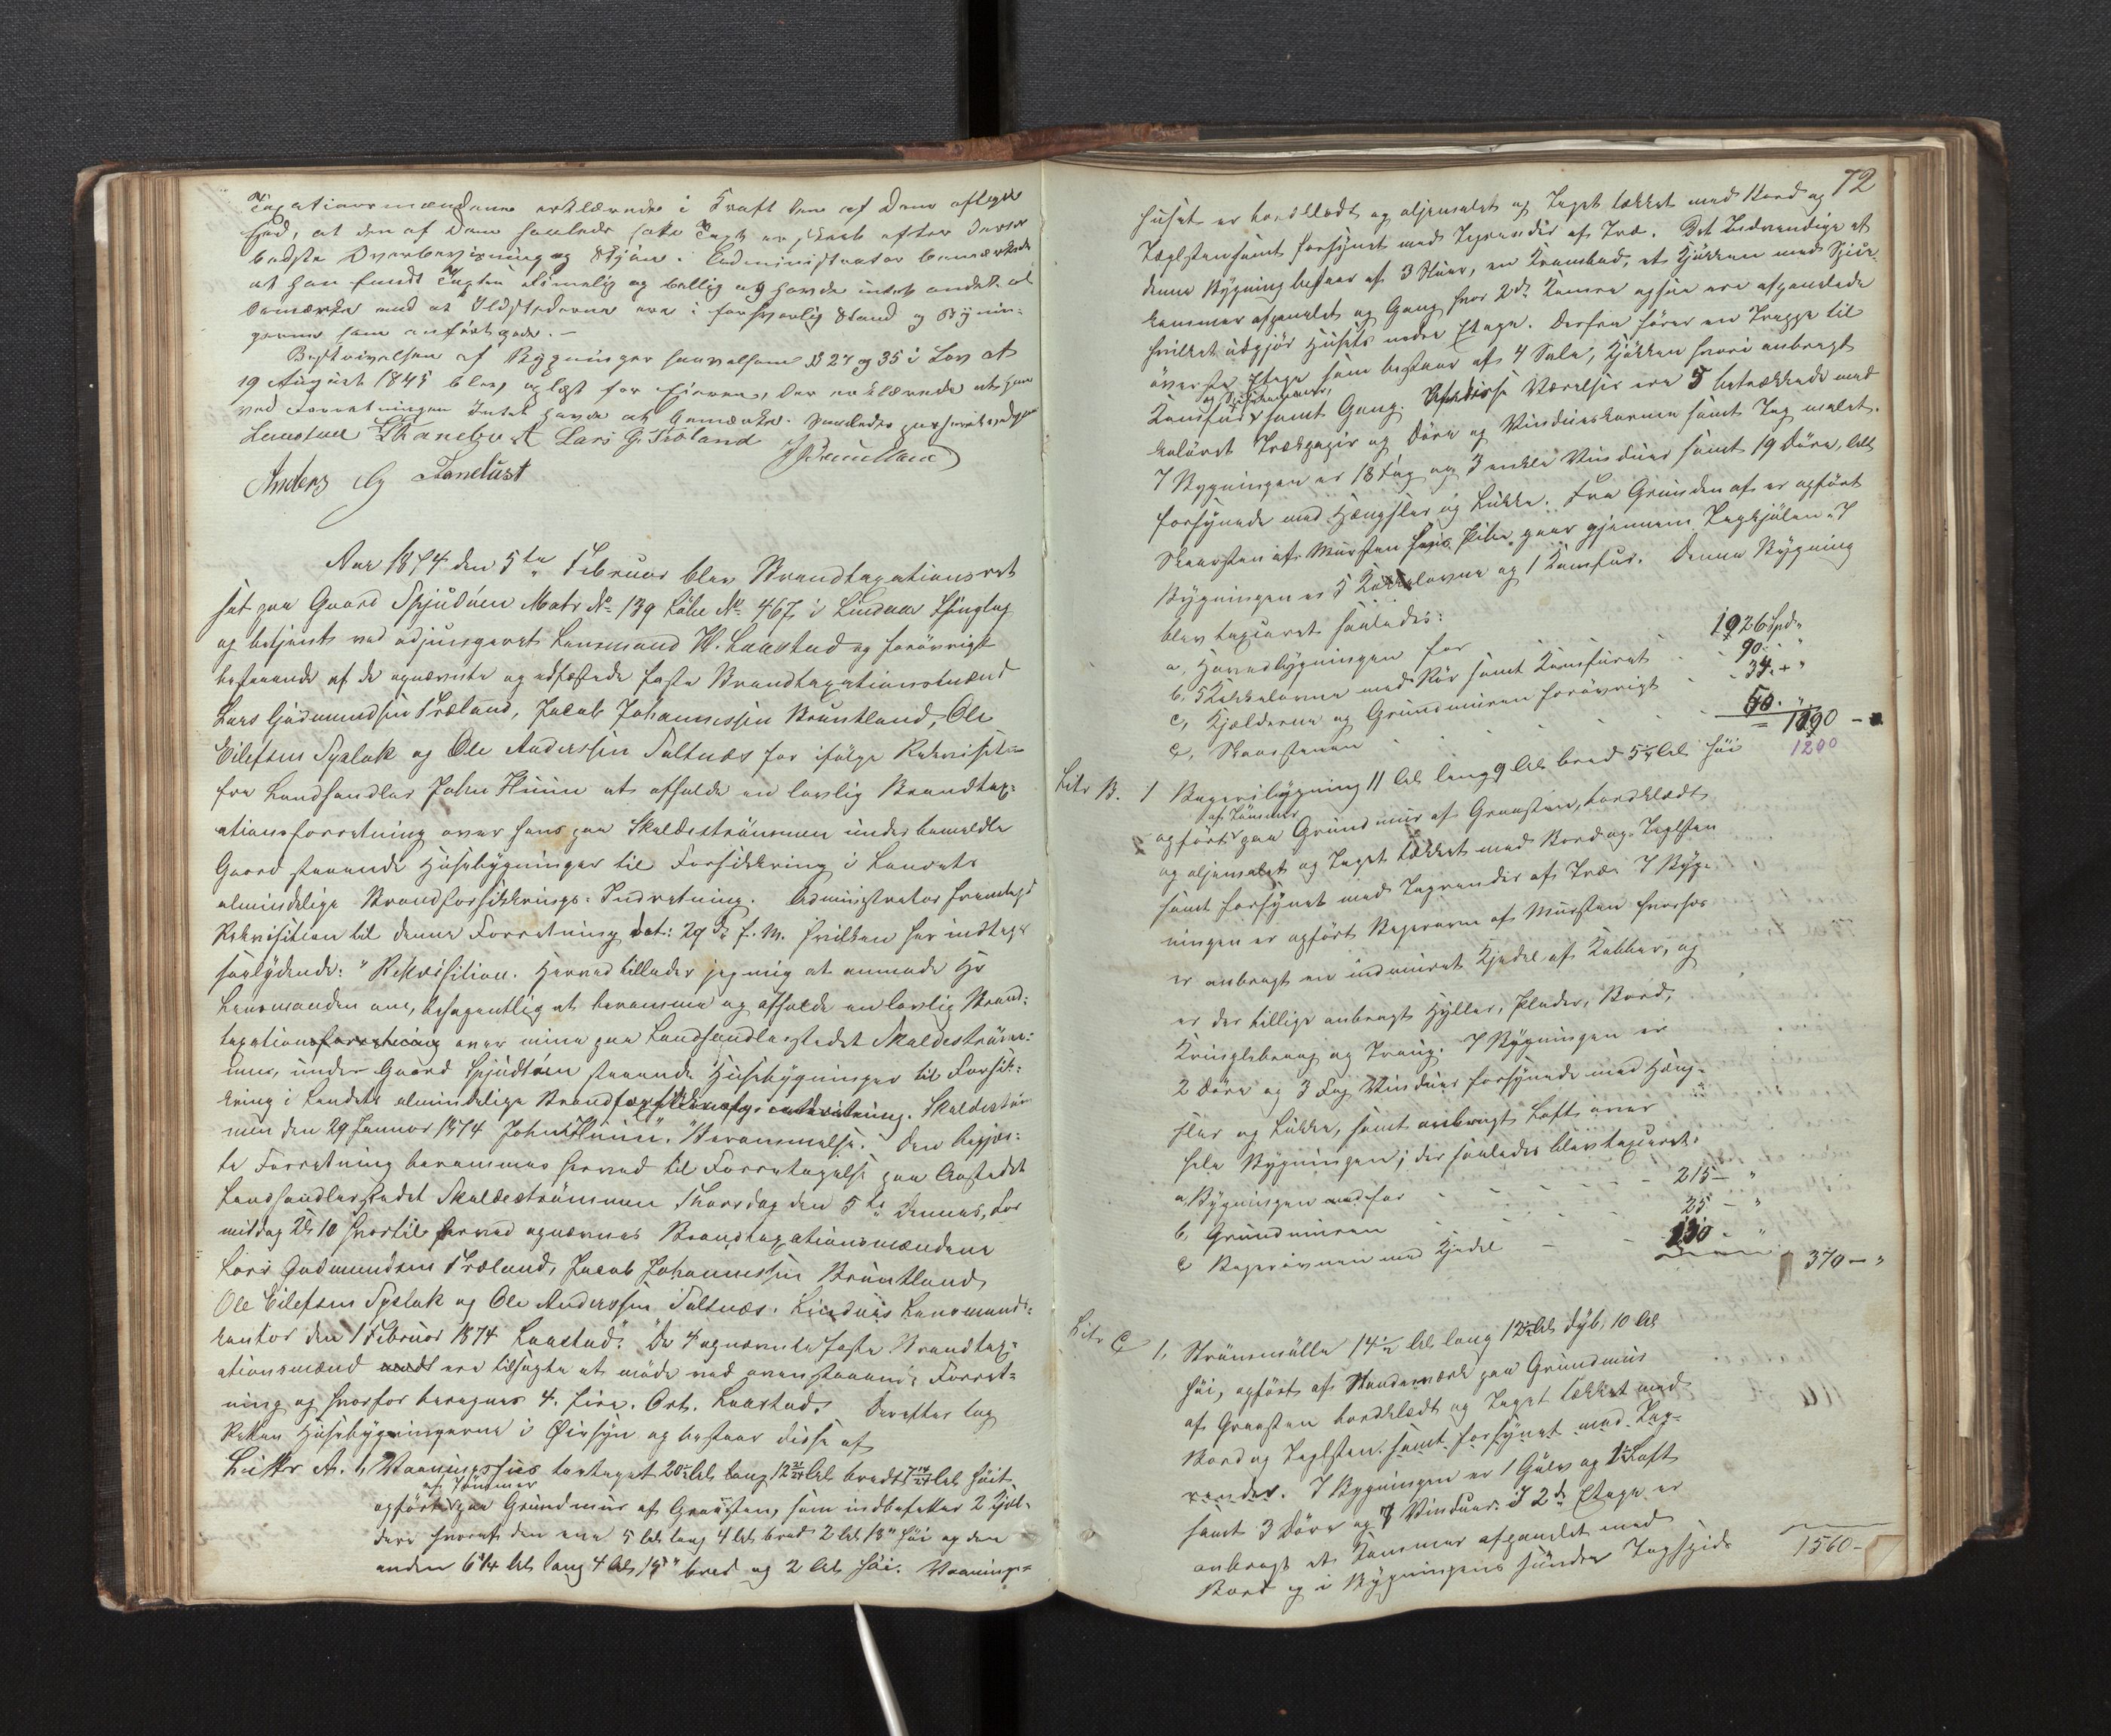 Taxationsmændene erklærede i Kraft den af Dem aflagte
Eed, at den af Dem saaledes satte Taxt er skeet efter Deres
bedste Overbeviisning og Skjøn. Administrator bemærkede
at han fandt Taxten rimelig og billig og havde intet andet at
bemærke end at Ildstederne ere i forsvarlig Stand og Bygnin-
gerne som anført gode. -
Beskrivelsen af Bygninger saavelsom § 27 og 35 i Lov af
19 August 1845 blev oplæst for Eieren, der erklærede at han
ved Forretningen Intet havde at bemærke. Saaledes passeret
Laastad Lars G. Træland J J Bruntland
Anders Og Tanelust
Aar 1874 den 5te Februar blev Brandtaxationsret
sat paa Gaard Spjudøen Matr No 139 Løbe No 467 i Lindaas Thinglag
og betjent ved adjungeret Lensmand W. Laastad og forøvrigt
bestaaende af de opnævnte og edfæstede faste Brandtaxationsmænd
Lars Gudmundsen Træland, Jacob Johannessen Bruntland, Ole
Eilefsen Syslak og Ole Anderssen Saltnæs for ifølge Rekvisition
fra Landhandler John Thuin at afholde en lovlig Brandtax-
ationsforretning over hans paa Skaldestrømmen under bemeldte
Gaard staaende Husebygninger til Forsikkring i Landets
almindelige Brandforsikkrings-Indretning. Administrator fremlagde
Rekvisition til denne Forretning dat: 29de f. M. hvilken her indtages
saalydende: "Rekvisition. Herved tillader jeg mig at anmode Hr
Lensmanden om, behagentlig at beramme og afholde en lovlig Brand-
taxationsforretning over mine paa Landhandlerstedet Skaldestrøm-
men, under Gaard Spjudøen staaende Husebygninger til Forsik-
kring i Landets almindelige Brandforsikkrings-indretning. Skaldestrøm-
men den 29 Januar 1874 John Thuin". "Berammelse." Den begjær-
te Forretning berammes herved til Foretagelse paa Aastedet
Landhandlerstedet Skaldestrømmen Thorsdag den 5te dennes, For-
middag Kl 10 hvortil herved opnævnes Brandtaxationsmændene
Lars Gudmundsen Træland, Jacob Johannessen Bruntland
Ole Eilefsen Syslak og Ole Anderssen Saltnæs. Lindaas Lensmands-
kontor den 1 Februar 1874 Laastad". De 4 opnævnte faste Brandtax-
ationsmænd ere tilsagte at møde ved ovenstaaende Forret-
ning og hvorfor beregnes 4. fire. Ort. Laastad. Derefter tog
Retten Husebygningerne i Øiesyn og bestaar disse af
Litter A. 1, Vaaningshus toetaget 20½ Al. lang 12 Al. bredt 7 Al. høit
af Tømmer
opført paa Grundmur af Graasten, som indbefatter 2 Kjæl-
dere hvoraf den ene 5 Al. lang 4 Al. bred 2 Al. 18" høi og den
anden 6¼ Al. lang 4 Al. 15" bred og 2 Al. høi. Vaanings-
72
huset er bordklædt og oljemalet og Taget tækket med Bord og
Taglsten samt forsynet med Tagrender af Træ. Det Indvendige af
denne Bygning bestaar af 3 Stuer, en Krambod, et Kjøkken med Spise-
kammer afpanelet og Gang hvor 2de Kamre ogsaa ere afpanelede
hvilket udgjør Husets nedre Etage. Derfra fører en Trappe til
øverste Etage som bestaar af 4 Sale, Kjøkken hvori anbragt
og Spisekammer,
Komfur samt Gang. Af disse Værelser ere 5 betrækkede med
kuløret Trækpapir og Døre og Vindueskarmer samt Tag malet.
I Bygningen er 18 Fag og 3 enkle Vinduer samt 19 Døre, alt
forsynede med Hængsler og Lukke. Fra Grunden af er opført
Skorsten af Mursten hvis Pibe gaar gjennem Tagkjølen. I
Bygningen er 5 Kakkelovne og 1 Komfur. Denne Bygning
blev taxeret saaledes:
a, Hovedbygningen for 1026 Spd.
b, 5 Kakkelovne med Rør samt Komfuret 90 - "
c, Kjelderne og Grundmuren forøvrigt 34 - "
d, Skorstenen 50. "
1190 -
1200
Litr B. 1 Bageribygning 11 Al. lang 9 Al. bred 5¼ Al. høi
af Tømmer
opført paa Grundmur af Graasten, bordklædt
og oljemalet og Taget tækket med Bord og Taglsten
samt forsynet med Tagrender af Træ. I Byg-
ningen er opført Bagerovn af Mursten hvorhos
er anbragt en indmuret Kjedel af Kobber, og
er der tillige anbragt Hyller, Plader, Bord,
Kringlebænk og Traug. I Bygningen er
2 Døre og 3 Fag Vinduer forsynede med Hæng-
sler og Lukke, samt anbragt Loft over
hele Bygningen; der saaledes blev taxeret.
a, Bygningen for 215 - "
b, Grundmuren 25 - "
c Bagerovnen med Kjedel 130 - "
370 - "
Litr C 1, Strømmølle 14½ Al. lang 12½ Al. dyb, 10 Al.
høi, opført af Standerværk paa Grundmur
af Graasten bordklædt og Taget tækket med
Bord og Taglsten samt forsynet med Tag-
render. I Bygningen er 1 Gulv og 1½ Loft
samt 3 Døre og 7 Vinduer. I 2de Etage er
anbragt et Kammer afpanelet med
Bord og i Bygningens søndre Tagside
1560 -